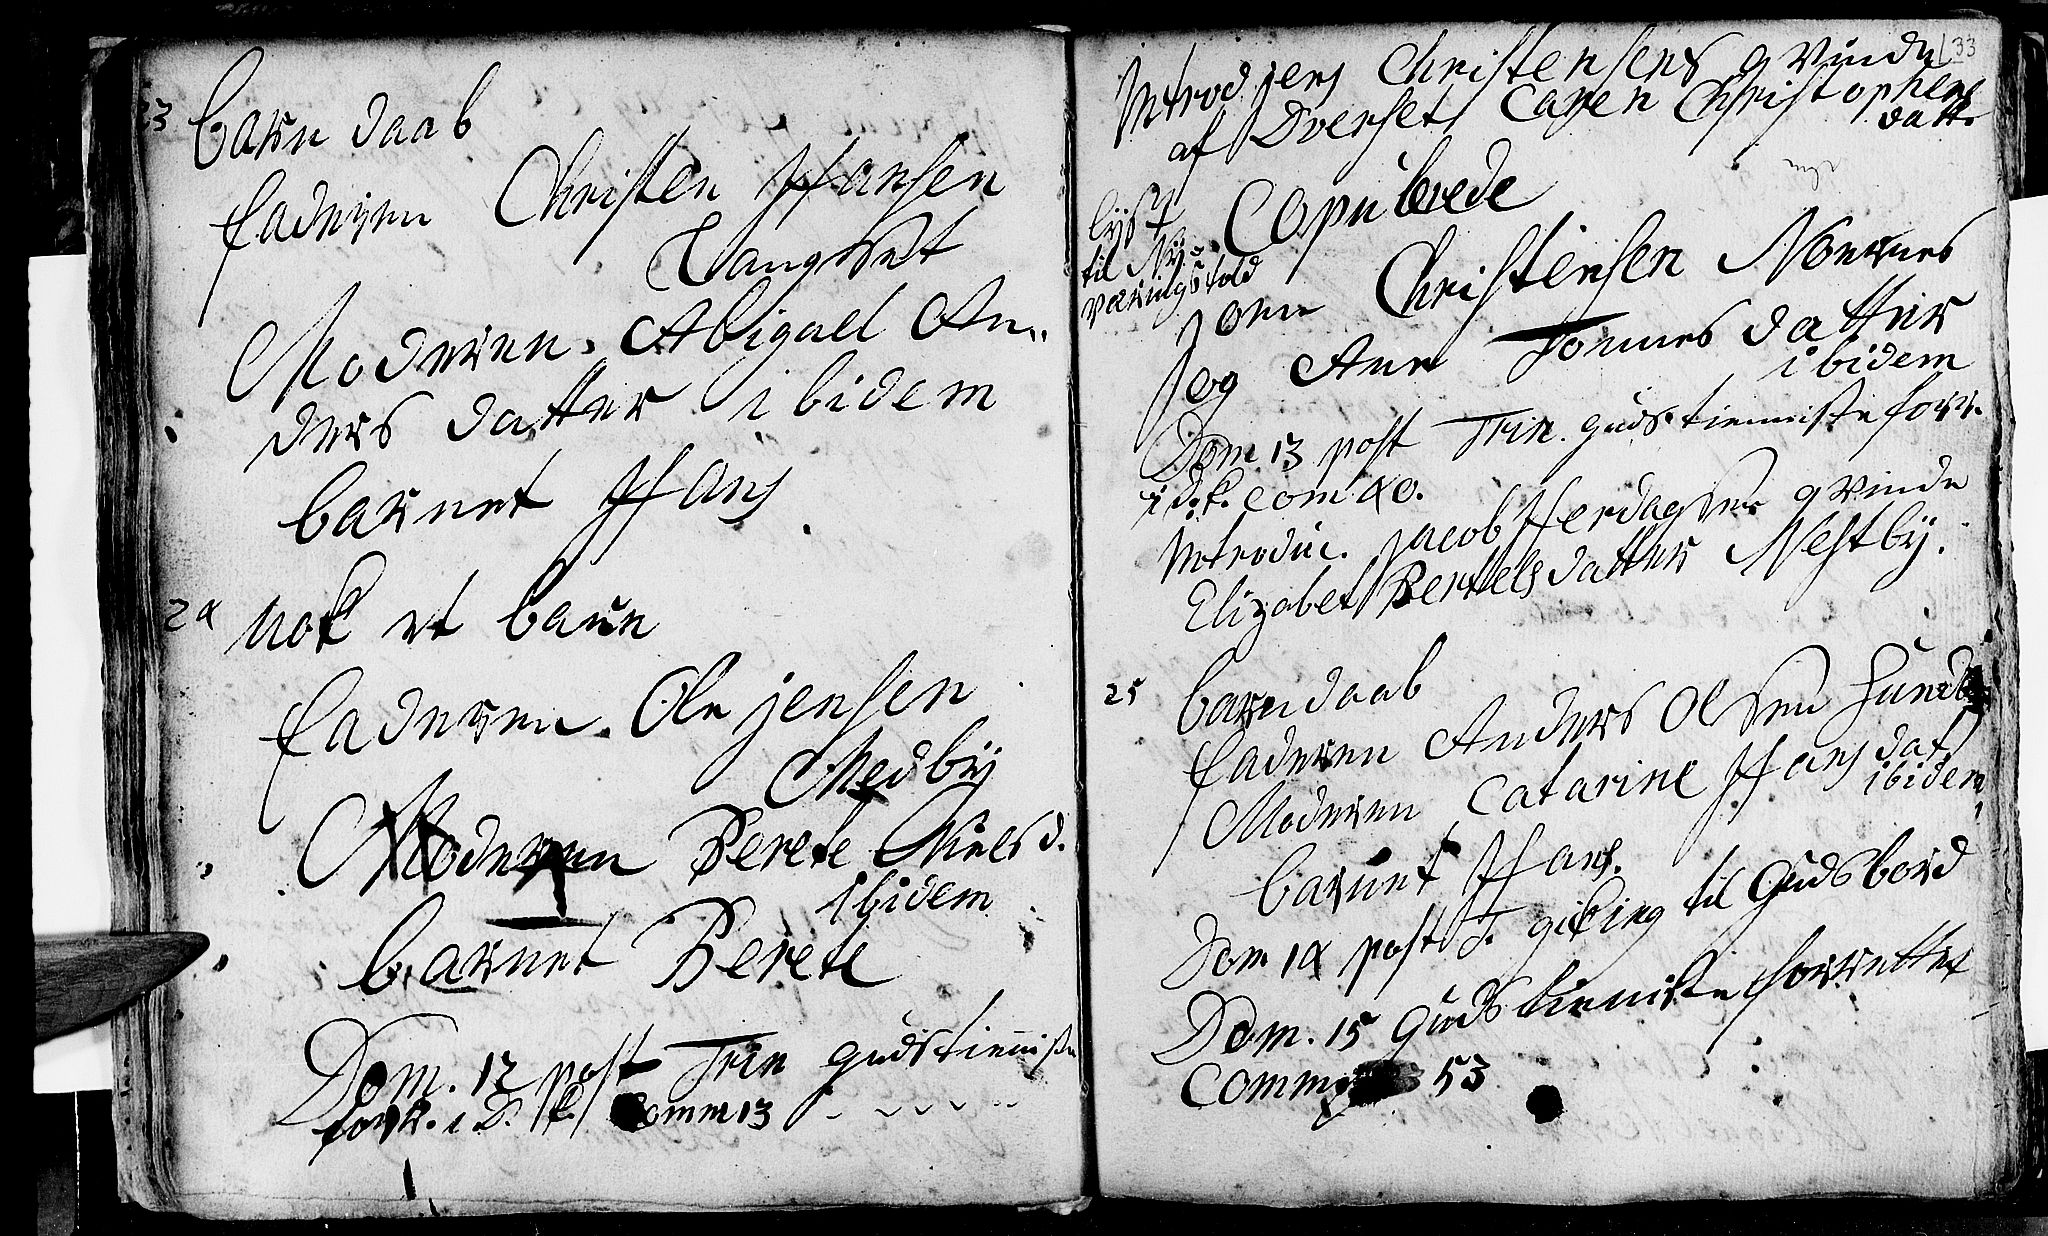 23 barn daab
faderen Christen Hansen
Tangset
Moderen. Abigael An„
ders datter ibidem
barnet Hans
24 nok et barn
faderen. Ole jensen
Medbÿ
Moderen Berete Nielsd.
ibidem
barnet Berete
Dom. 12 post Trin gudstienniste
forr. i D. k Comm 13
133
Introd jens Christensens qvinde
af Dverset Caren Christophers
datt.
lÿst
til Nÿ-
værings told
Copulerede
jonn Christensen Noernes
og Ane Tonnes datter
ibidem
Dom 13 post Trin. guds tienniste forr.
i D. k. Com 40.
Introduc. jacob Herdagsens qvinde
Elizabet Bertels datter Nestbÿ.
25 barn daab
faderen Anders Olsen Hund
Moderen Catarine Hans dat
ibidem
barnet Hans.
Dom 14 post T. gik ieg til Guds bord
Dom. 15 Guds tienniste forrettet
Comm 53